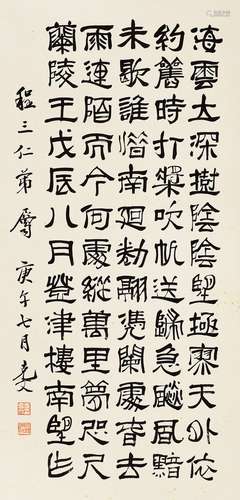 海雲大深樹陰陰望極寥天外依
約舊時打槳吹帆送歸急飈風黯
未歇誰惜南迴勒翮憑闌處春去
雨連陌而今何處縱萬里夢咫尺
蘭陵王戊辰八月登津樓南望作
三仁弟屬 庚午七月克文